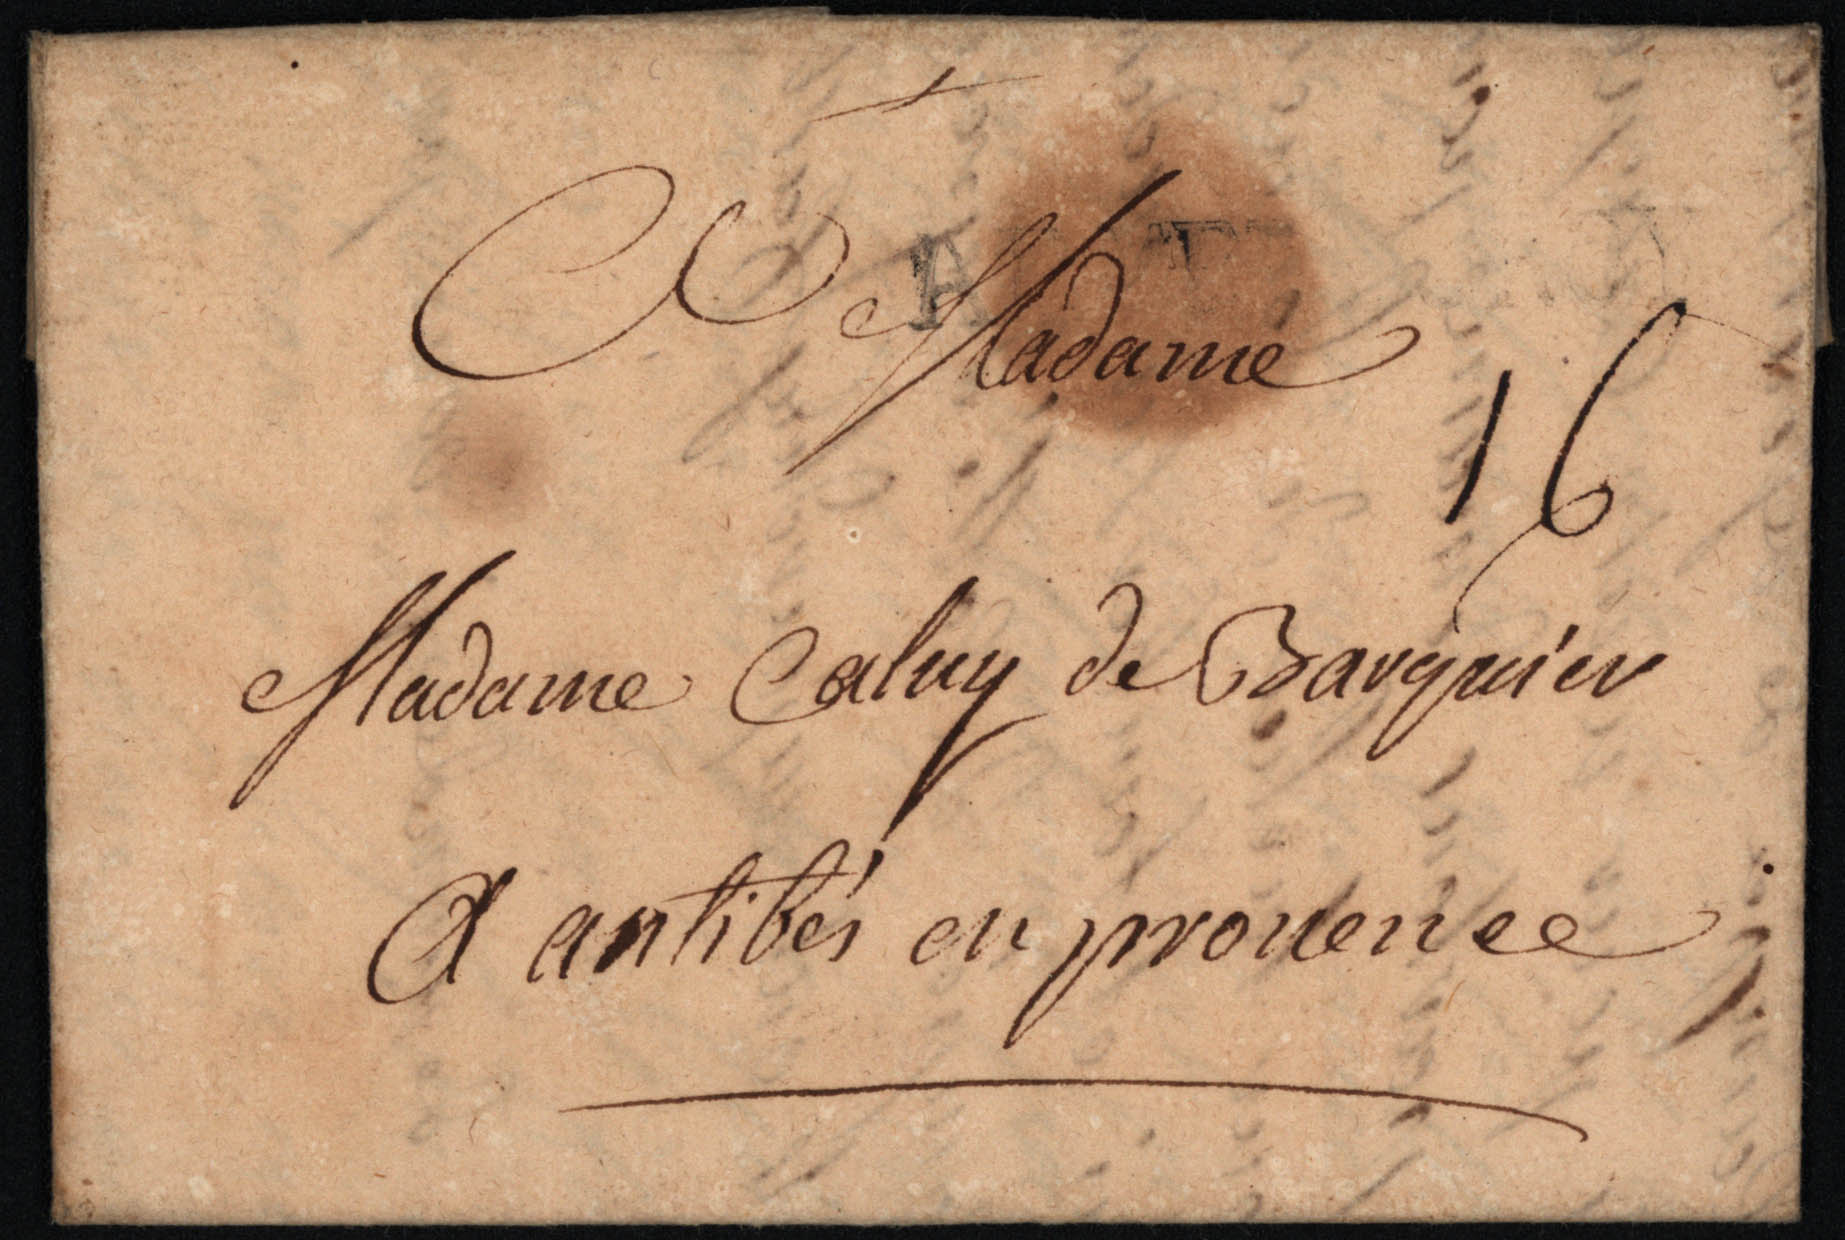 Madame
16
Madame Caluy de Barquier
A antibés en prouence